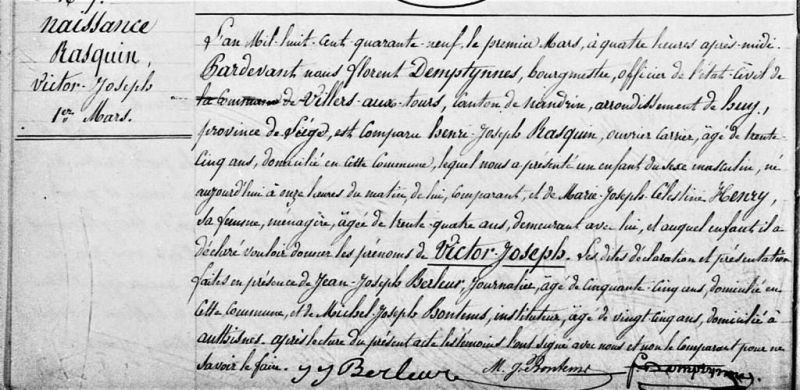 naissance
Rasquin,
Victor-Joseph
1er Mars.
L'an Mil-huit-Cent-quarante-neuf, le premier Mars, à quatre heures après-midi.
Pardevant nous florent Demptynnes, bourgmestre, officier de l'état-Civil de
la Commune de Villers-aux-tours, Canton de nandrin, arrondissement de huy,
province de Liège, est Comparu henri-Joseph Rasquin, ouvrier Carrier, âgé de trente-
Cinq ans, domicilié en Cette Commune, lequel nous a présenté un enfant du sexe masculin, né
aujourd'hui à onze heures du matin, de lui, Comparant, et de Marie-Joseph Célestine Henry,
sa femme, ménagère, âgée de trente-quatre ans, demeurant avec lui, et auquel enfant il a
déclaré vouloir donner les prénoms de Victor-Joseph. Les dites déclaration et présentation
faites en présence de Jean-Joseph Berleur, Journalier, âgé de Cinquante-Cinq ans, domicilié en
Cette Commune, et de Michel-Joseph Bontems, instituteur, âgé de vingt Cinq ans, domicilié à
anthisnes. après lecture du présent acte les témoins l'ont signé avec nous et non le Comparant pour ne
Savoir le faire. J J Berleur M. J. Bontems f. Demptynnes.